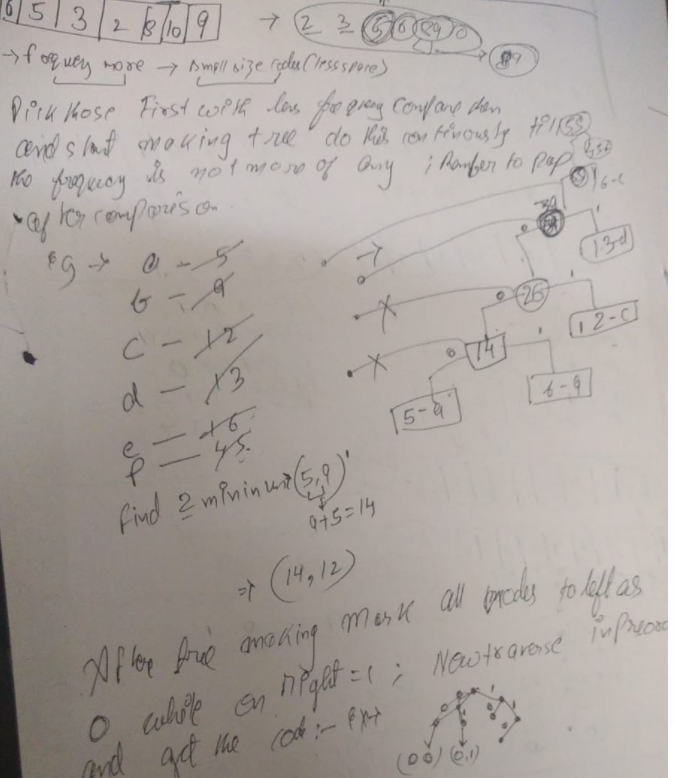 6 5 3 2 8 10 9 → 2 3 5 6
→ frequency more → small size codes (less space)
Pick those First with less frequency compare them
and start making tree do this continuously till
the frequency is not more of any ; Remember to pop
after comparison.
eg → a - 5
b - 9
c - 12
d - 13
e - 16
f - 45
16-e
13-d
26
12-c
14
5-a
b-9
0 1
0 1
0 1
find 2 minimum (5,9)
9+5=14
⇒ (14,12)
After tree making mark all nodes to left as
0 while on right = 1 ; Now traverse in
and get the code :- ex →
(00) (0,1)